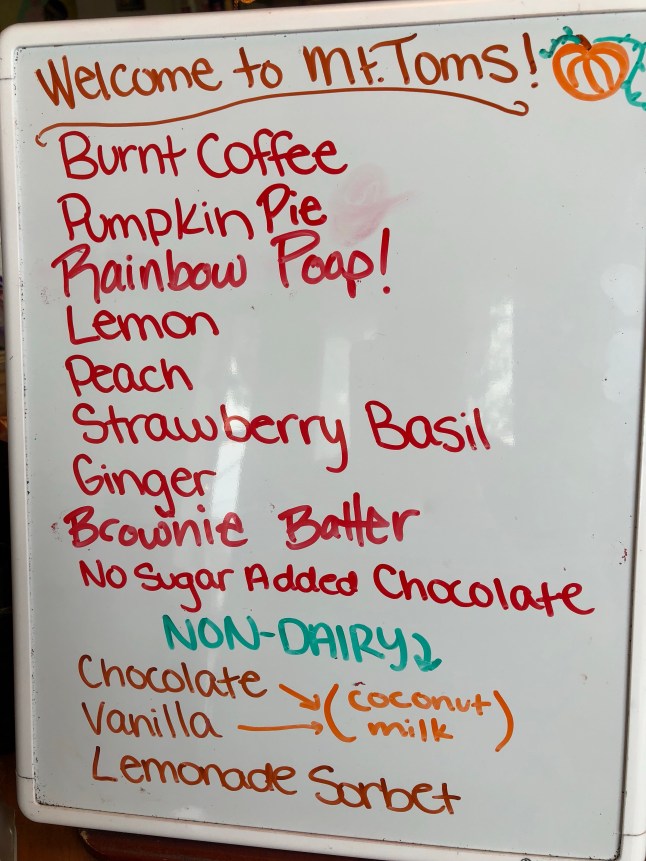 Welcome to Mt. Toms!
Burnt Coffee
Pumpkin Pie
Rainbow Poop!
Lemon
Peach
Strawberry Basil
Ginger
Brownie Batter
No Sugar Added Chocolate
NON-DAIRY
Chocolate
Vanilla
(coconut milk)
Lemonade Sorbet